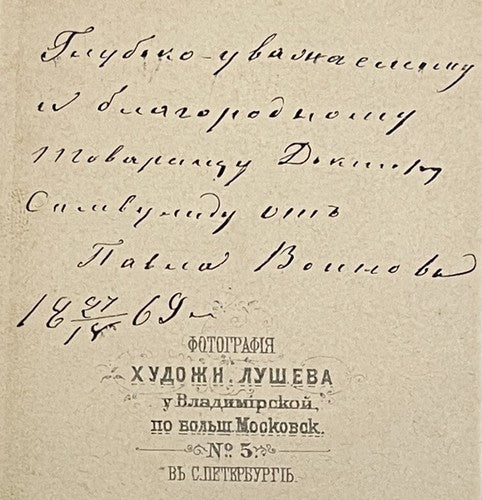 Глубоко-уважаемому
и благородному
товарищу Доктору
отъ
Павла Воинова
18 69
ФОТОГРАФІЯ
ХУДОЖН. ЛУШЕВА
у Владимірской,
по больш. Московск.
№ 5.
ВЪ С.ПЕТЕРБУРГѢ.